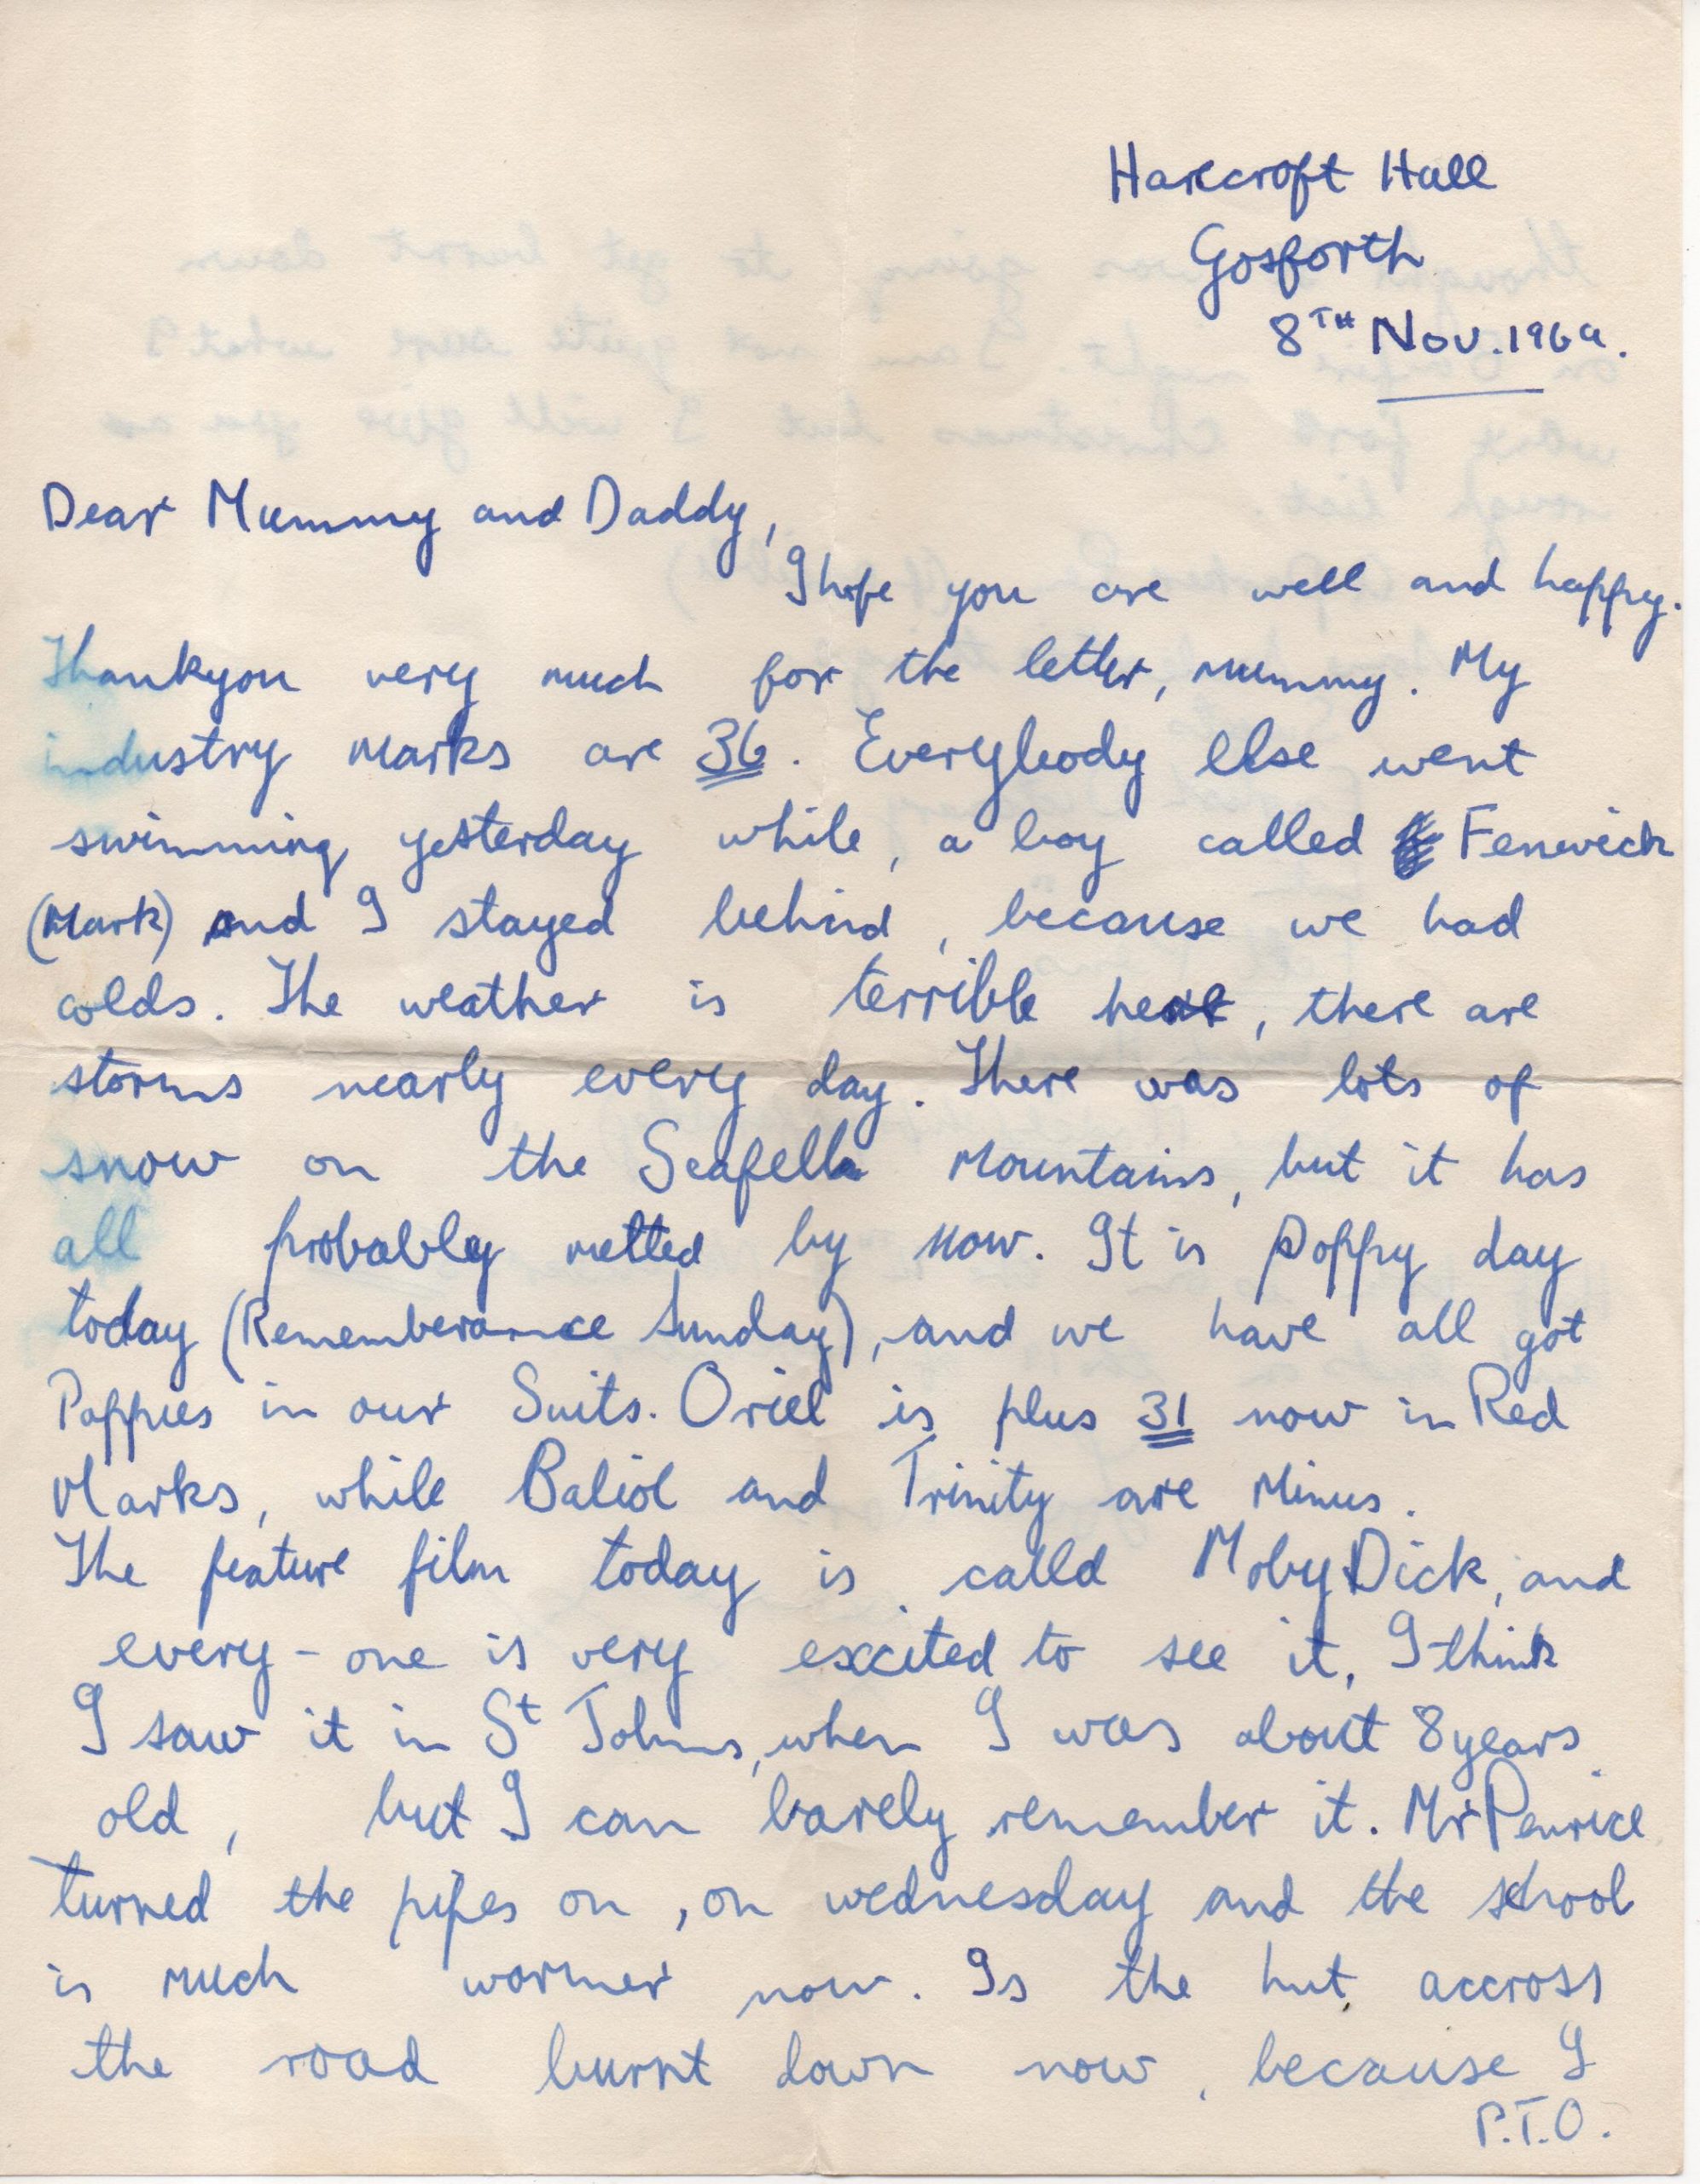 Harecroft Hall
Gosforth
8TH Nov. 1969.
Dear Mummy and Daddy,
I hope you are well and happy.
Thankyou very much for the letter, mummy. My
industry marks are 36. Everybody else went
swimming yesterday while, a boy called Fenwick
(Mark) and I stayed behind, because we had
colds. The weather is terrible here, there are
storms nearly every day. There was lots of
snow on the Scafell mountains, but it has
all probably melted by now. It is Poppy day
today (Rememberance Sunday), and we have all got
Poppies in our Suits. Oriel is plus 31 now in Red
Marks, while Baliol and Trinity are Minus.
The feature film today is called Moby Dick, and
every-one is very excited to see it, I think
I saw it in St Johns, when I was about 8 years
old, but I can barely remember it. Mr Penrice
turned the pipes on, on wednesday and the school
is much warmer now. Is the hut accross
the road burnt down now, because I
P.T.O.